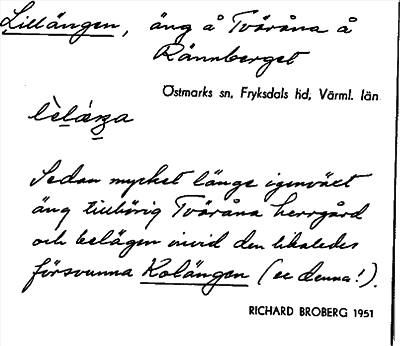 Lillängen, äng å Tvåråna å
Rännberget
Östmarks sn, Fryksdals hd, Värml. län
Sedan mycket länge igenväxt
äng tillhörig Tvåråna herrgård
och belägen invid den likaledes
försvunna Kolängen (se denna!).
RICHARD BROBERG 1951